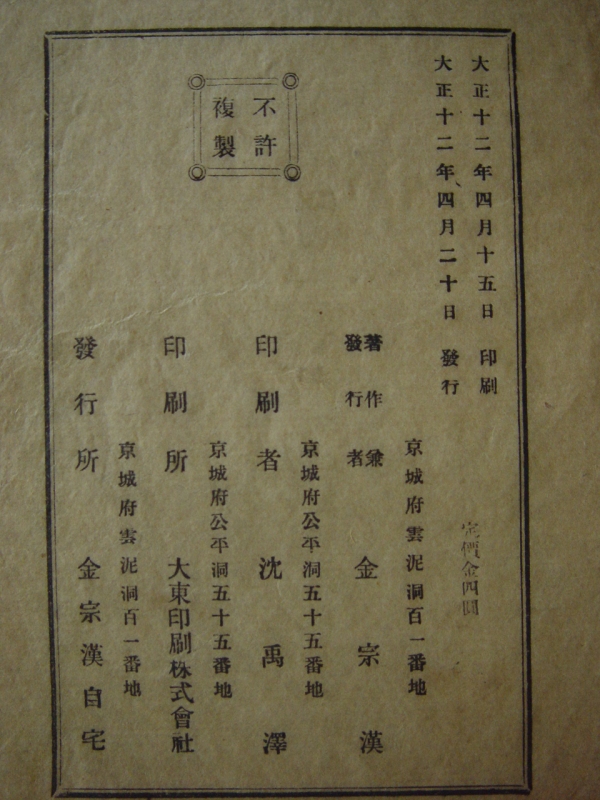 大正十二年四月十五日 印刷
大正十二年四月二十日 發行
定價金四圓
不許
複製
京城府雲泥洞百一番地
著作兼
發行者 金宗漢
京城府公平洞五十五番地
印刷者 沈禹澤
京城府公平洞五十五番地
印刷所 大東印刷株式會社
京城府雲泥洞百一番地
發行所 金宗漢自宅